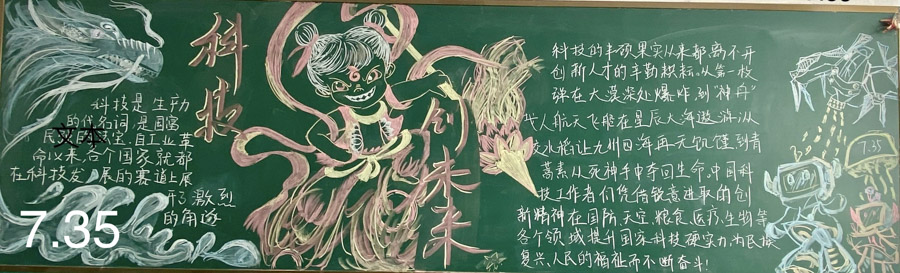 科技
创未来
科技是生产力
的代名词,是国富
民文本宝,自工业革
命以来,各个国家就都
在科技发展的赛道上展
开了激烈
的角逐
科技的丰硕果实从来都离不开
创新人才的辛勤耕耘。从第一枚
弹在大漠深处爆炸,到"神舟"
载人航天飞船在星辰大海遨游;从
水稻让九州四海再无饥馑到青
蒿素从死神手中夺回生命,中国科
技工作者们凭借锐意进取的创
新精神在国防、天空、粮食、医疗、生物等
各个领域提升国家科技硬实力,为民族
复兴、人民的福祉而不断奋斗!
7.35
7.35